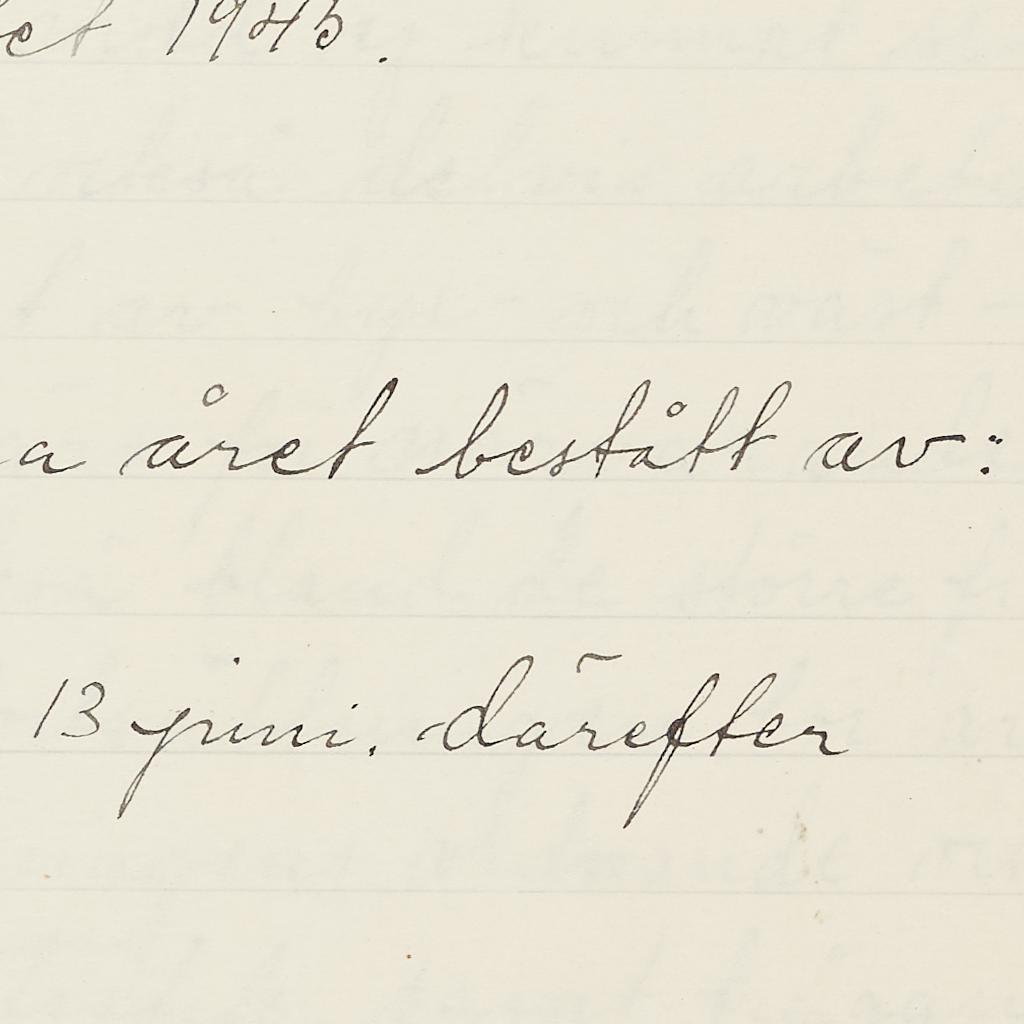 et 1945.
a året bestått av:
13 juni, därefter